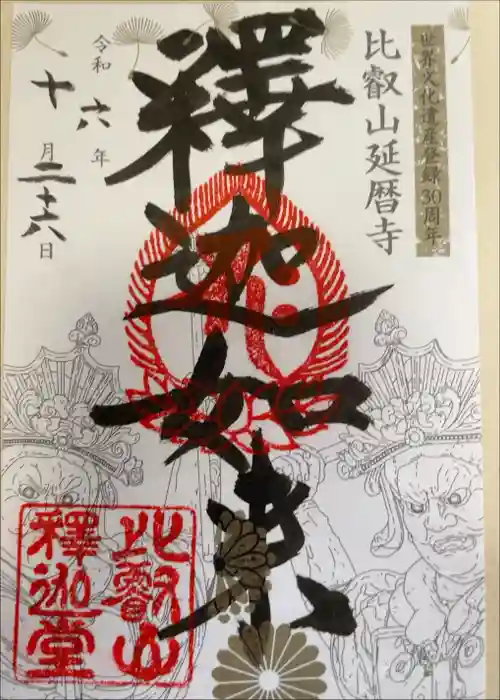 世界文化遺産登録30周年
比叡山延暦寺
釋迦如来
令和六年
十月二十六日
比叡山
釋迦堂